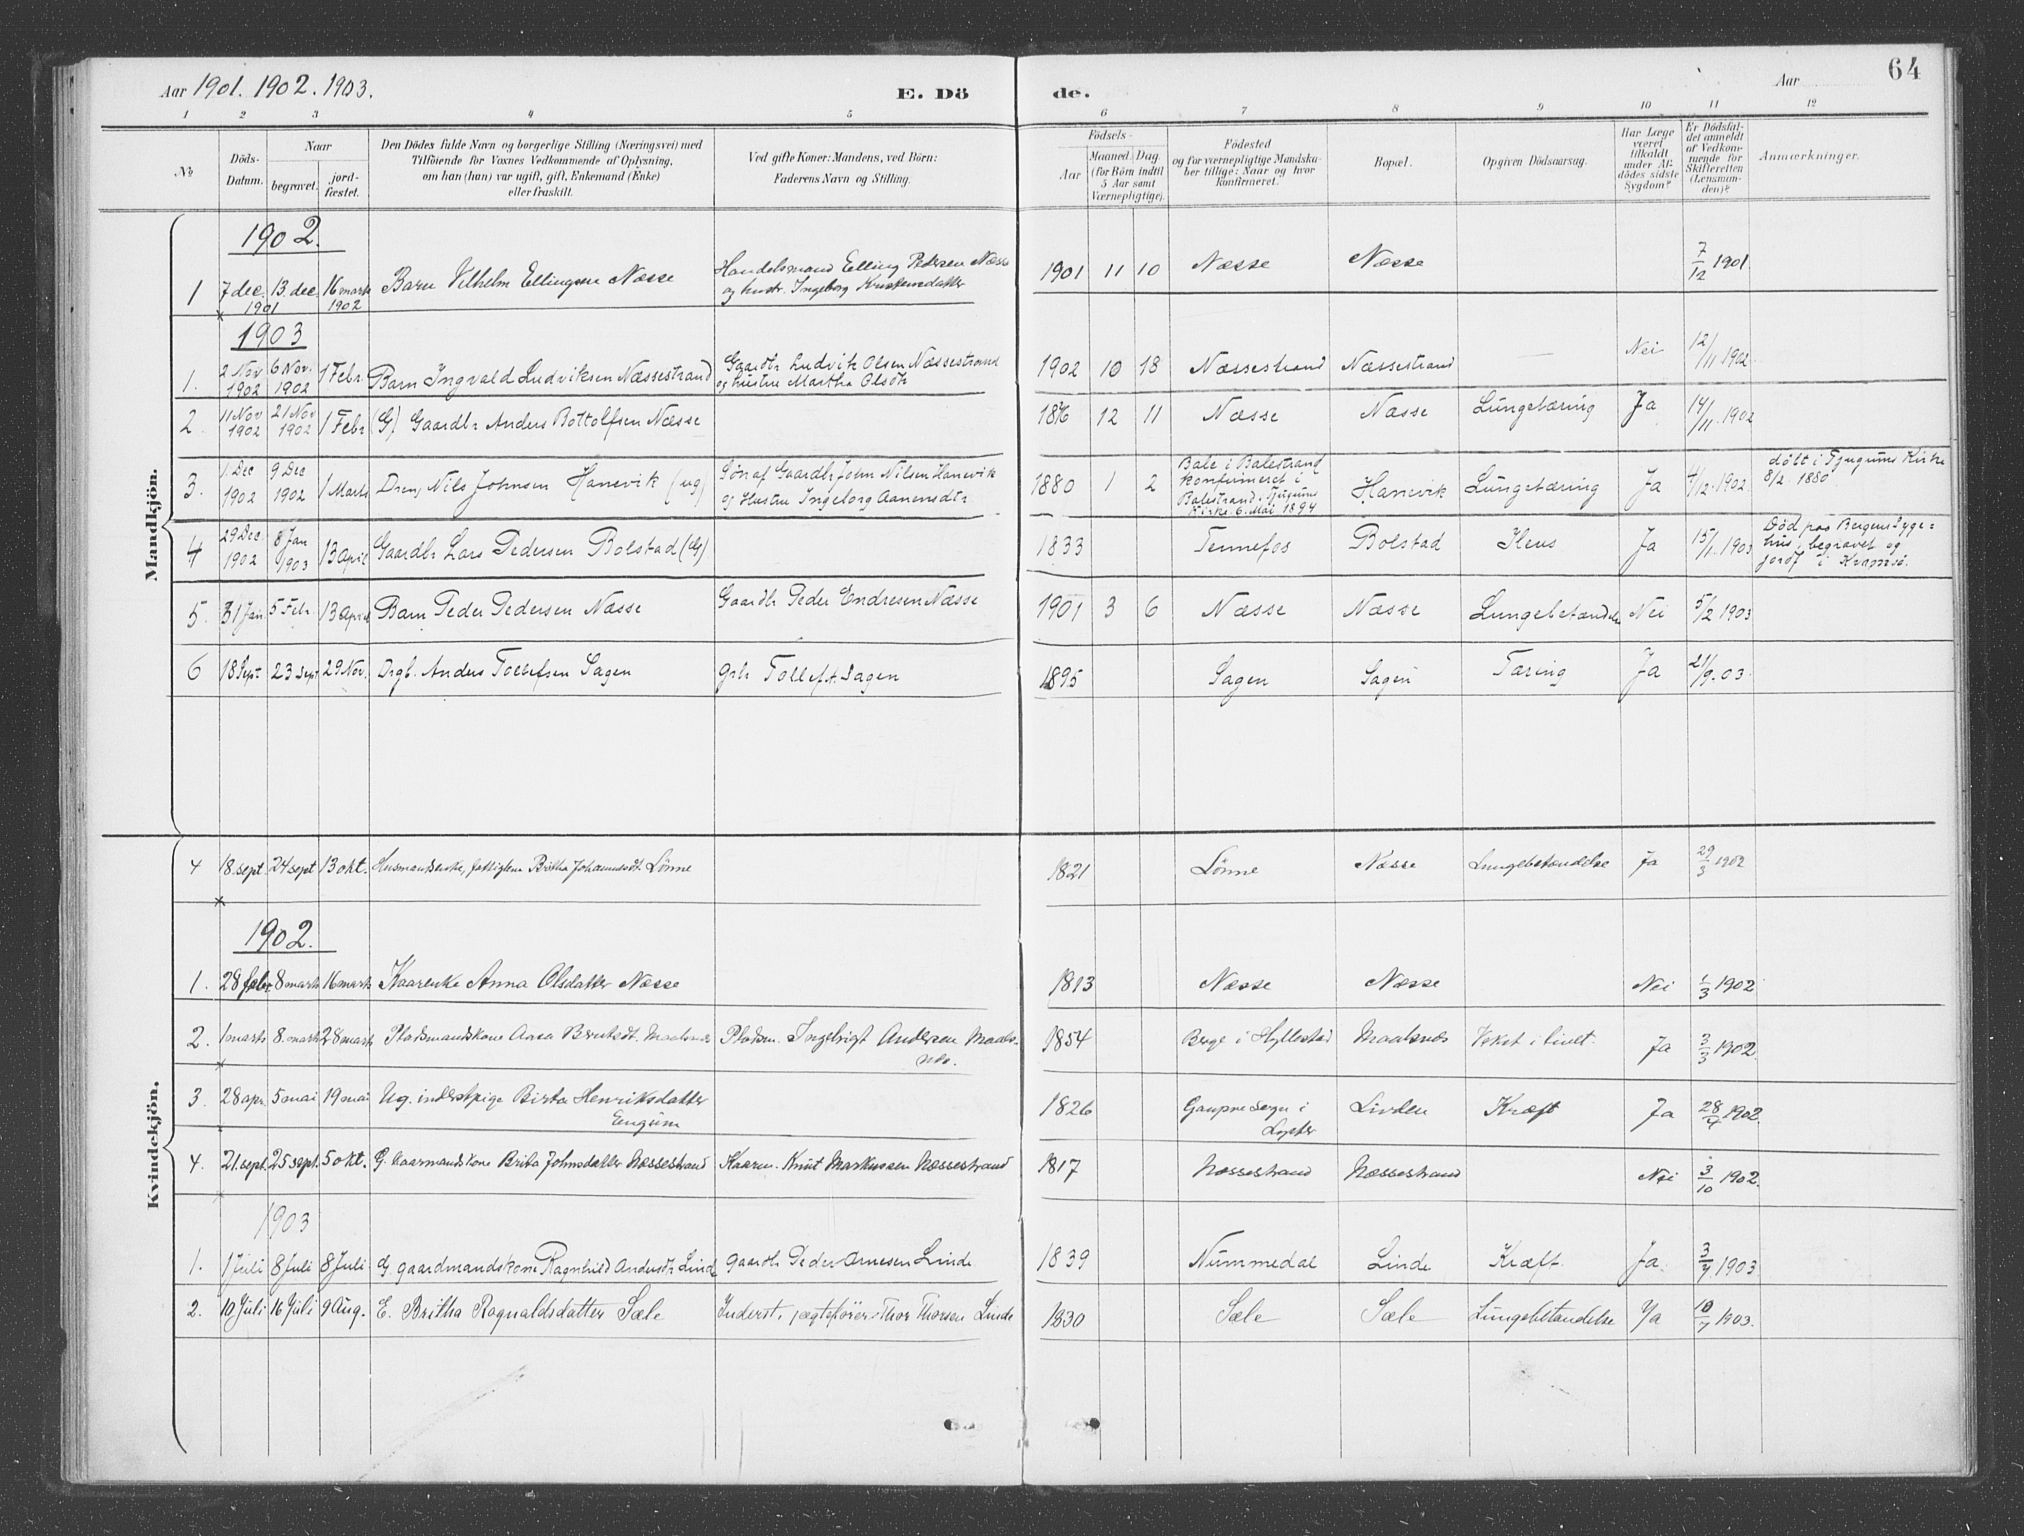 Aar 1901. 1902. 1903.
E. Dö
de.
Aar
64
1 2 3 4 5 6 7 8 9 10 11 12
№
Döds-
Datum.
Naar
begravet.
jord-
fæstet.
Den Dödes fulde Navn og borgerlige Stilling (Næringsvei) med
Tilföiende för Voxnes Vedkommende af Oplysning,
om han (hun) var ugift, gift, Enkemand (Enke)
eller fraskilt.
Ved gifte Koner: Mandens, ved Börn:
Faderens Navn og Stilling.
Födsels-
Aar
Maaned. Dag
(for Börn indtil
5 Aar samt
Værnepligtige).
Födested
og for værnepligtige Mandska-
ber tillige: Naar og hvor
konfirmeret.
Bopæl.
Opgiven Dödsaarsag.
Har Læge
været
tilkaldt
under Af-
dödes sidste
Sygdom?
Er Dödsfal-
det anmeldt
af Vedkom-
mende for
Skifteretten
(Lensman-
den)?
Anmærkninger.
Mandkjön.
1902.
1 7 dec. 1901 13. dec. 16 marts 1902 Barn Vilhelm Ellingsen Næsse Handelsmand Elling Pedersen Næsse
og hustr. Ingeborg 1901 11 10 Næsse Næsse 7/12 1901
1903
1. 2 Nov 1902 6 Nov. 1902 1 Febr. Barn Ingvald Ludviksen Næssestrand Gaardbr Ludvik Olsen Næssestrand
og hustru Martha Olsdtr 1902 10 18 Næssestrand Næssestrand — Nei 12/11 1902
2. 11 Nov 1902 21 Nov 1902 1 Febr (G). Gaardbr Anders Bottolfsen Næsse 12 11 Næsse Næsse Lungetæring Ja 14/11. 1902
3. 1 Dec 1902 9 Dec 1902 1 Marts Dreng Nils Johnsen Hanevik (ug) Søn af Gaardbr John Nilsen Hanevik
og Hustru Ingeborg Aanensdtr 1880 1 2 Bale i Balestrand
konfirmeret i
Balestrand, Tjugums
Kirke 6. Mai 1894 Hanevik Lungetæring Ja 4/12. 1902 døbt i Tjugums Kirke
8/2. 1880
4 29 Dec. 1902 8 Jan 1903 13 April Gaardbr Lars Pedersen Bolstad (G) 1833 Tennefos Bolstad Ileus Ja 15/1. 1903 Død paa Bergens Syge=
hus, begravet og
jordf i Kvamsø.
5. 31 Jan. 5 Febr 13 April Barn Peder Pedersen Næsse Gaardbr Peder Endresen Næsse 1901 3 6 Næsse Næsse Lungebetændelse Nei 5/2 1903
6 18 Sept 23 Sept 29 Nov. Drgb. Anders Tollefsen Sagen Gbr Tollef A. Sagen 1895 Sagen Sagen Tæring Ja 21/9. 03
Kvindekjön.
4 18. sept. 24 sept 13 okt. Husmandsenke, fattiglem Britha Johannesdt. Lönne 1821 Lönne Næsse Lungebetændelse Ja 29/3 1902
1902.
1. 28 febr. 8 marts 16 marts Kaarenke Anna Olsdatter Næsse 1813 Næsse Næsse Nei 1/3 1902
2. 1 marts 8. marts 28 marts Pladsmandskone Aasa Bentsdt. Maalsnæs Pladsm. Ingebrigt Andersen Maals-
næs. 1854 Berge i Hyllestad Maalsnæs Vekst i livet. Ja 3/3 1902.
3. 28 apr. 5 mai 19 mai Ug. inderstpige Birta Henriksdatter
Engum 1826 Gaupne Sogn i
Lyster Linden Kræft Ja 28/4 1902.
4. 21. sept. 25 sept. 5 okt. G. kaarmandskone Brita Johnsdatter Næssestrand Kaarm. Knut Markussen Næssestrand 1817 Næssestrand Næssestrand Nei 3/10 1902.
1903
1. 1 Juli 8 Juli 8 Juli G. gaardmandskone Ragnhild Andersdtr Linde Gaardbr Peder Arnesen Linde 1839 Nummedal Linde Kræft. Ja. 3/7 1903.
2. 10 Juli 16 Juli 9 Aug. E. Britha Ragnaldsdatter Sæle Inderst, jægtefører Thor Thorsen Linde 1830 Sæle Sæle Lungebetændelse Ja 10/7 1903.